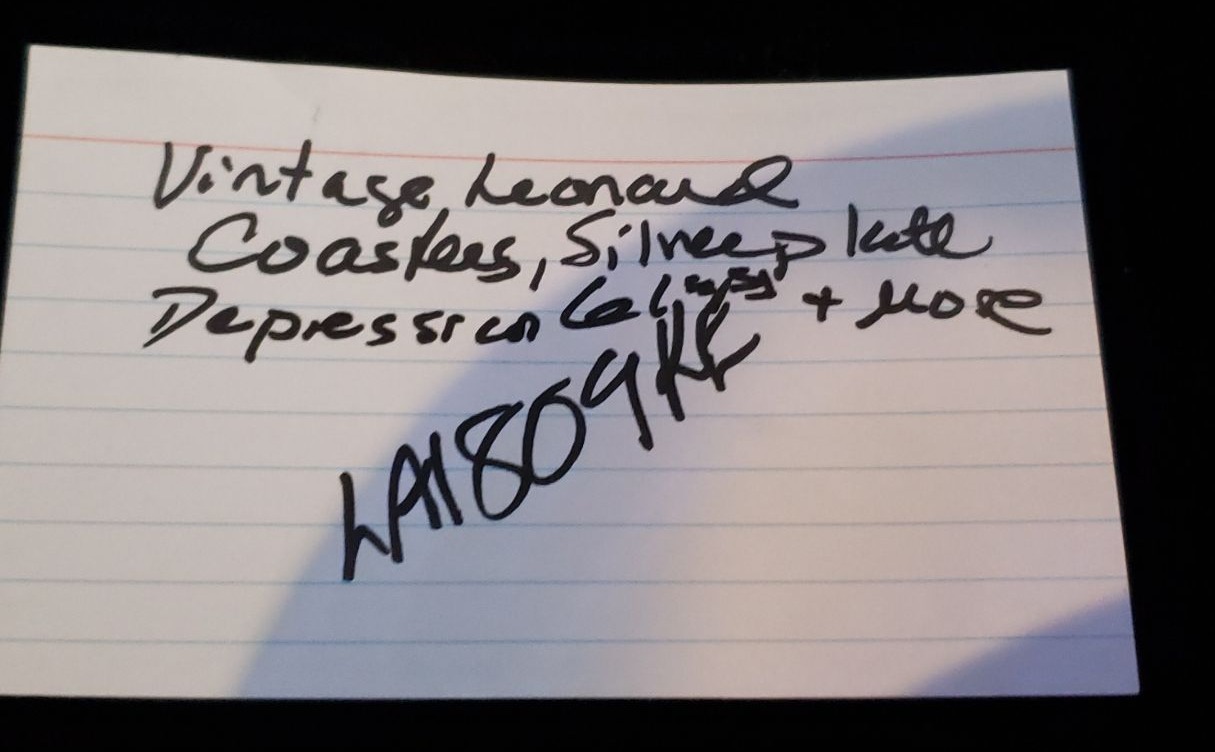 Vintage Leonard
Coasters, Silverplate
Depression Glass + More
LA1809KR